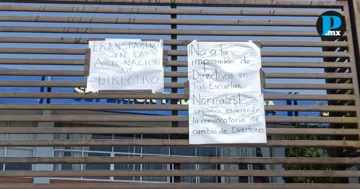 TRANSPARENCIA
EN LA
ASIGNACIÓN
DE
DIRECTIVO
No a la
imposición de
Directivos en
las Escuelas
Normales!
esperando
la convocatoria de
cambio de Directores
P
.mx